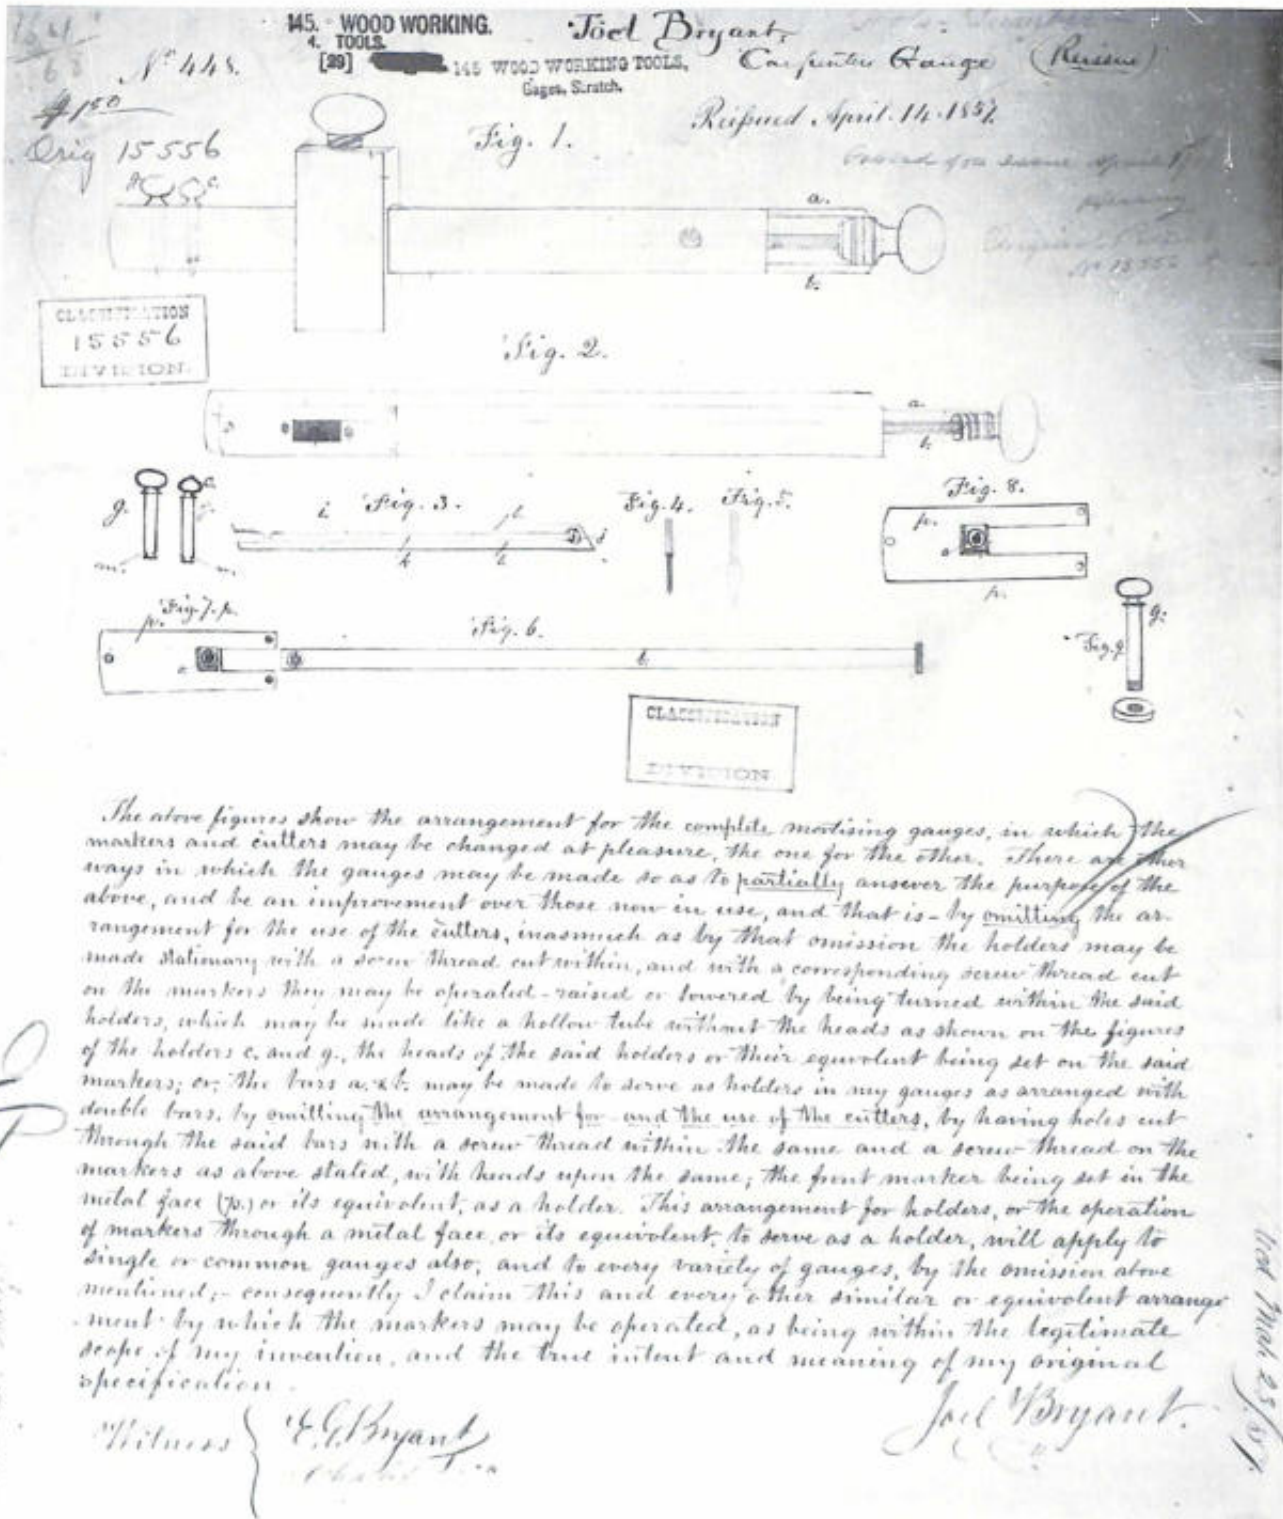 145. WOOD WORKING.
4. TOOLS.
[29]
145 WOOD WORKING TOOLS,
Gages, Scratch.
Joel Bryant,
Carpenter Gauge (Reissue)
No 448.
Reissued April. 14. 1857.
$1.50
Orig 15556
Fig. 1.
c.
a.
b.
Original Patent
No 15556
CLASSIFICATION
15556
DIVISION.
Fig. 2.
a.
b.
g.
c.
m.
Fig. 3.
i.
Fig. 4.
Fig. 5.
Fig. 8.
p.
o
p.
Fig. 7. p.
p.
Fig. 6.
b.
Fig. 9
g.
CLASSIFICATION
DIVISION
The above figures show the arrangement for the complete mortising gauges, in which the
markers and cutters may be changed at pleasure, the one for the other. There are other
ways in which the gauges may be made so as to partially answer the purpose of the
above, and be an improvement over those now in use, and that is - by omitting the ar-
rangement for the use of the cutters, inasmuch as by that omission the holders may be
made stationary with a screw thread cut within, and with a corresponding screw thread cut
on the markers they may be operated - raised or lowered by being turned within the said
holders, which may be made like a hollow tube without the heads as shown on the figures
of the holders c. and g., the heads of the said holders or their equivalent being set on the said
markers; or, the bars a. & b. may be made to serve as holders in my gauges as arranged with
double bars, by omitting the arrangement for and the use of the cutters, by having holes cut
through the said bars with a screw thread within the same and a screw thread on the
markers as above stated, with heads upon the same; the front marker being set in the
metal face (p.) or its equivalent, as a holder. This arrangement for holders, or the operation
of markers through a metal face, or its equivalent, to serve as a holder, will apply to
single or common gauges also, and to every variety of gauges, by the omission above
mentioned; - consequently I claim this and every other similar or equivalent arrange
ment by which the markers may be operated, as being within the legitimate
scope of my invention, and the true intent and meaning of my original
specification.
Joel Bryant.
Witness
E. G. Bryant